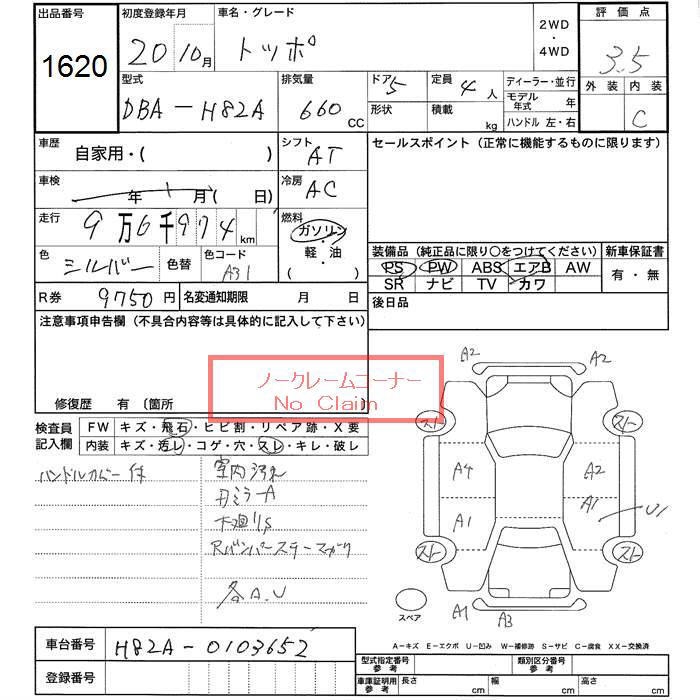 出品番号 初度登録年月 車名・グレード 2WD・4WD 評価点
1620 20 10月 トッポ 3.5
型式 排気量 ドア 5 定員 4人 ディーラー・並行 外装 内装
DBA-H82A 660 CC 形状 積載 kg モデル年式 年 C
ハンドル 左・右
車歴 自家用・( ) シフト AT セールスポイント (正常に機能するものに限ります)
車検 年 月( 日) 冷房 AC
走行 9万6千974km 燃料 ガソリン・軽・油( )
色 シルバー 色替 色コード A31
装備品 (純正品に限り〇をつけてください) 新車保証書
PS PW ABS エアB AW 有・無
SR ナビ TV カワ
R券 9750円 名変通知期限 月 日 後日品
注意事項申告欄 (不具合内容等は具体的に記入して下さい)
ノークレームコーナー
No Claim
修復歴 有 〔箇所
検査員記入欄 FW キズ・飛石・ヒビ割・リペア跡・X要
内装 キズ・汚レ・コゲ・穴・スレ・キレ・破レ
ハンドルカバー付 室内汚れ
刃ミラーA
Rバンパーステーマガリ
各A.U
A2 A2
スト スト
A4 A2
A1 A1 U1
スト スト
スペア A1 A3
車台番号 H82A-0103652
登録番号
A-キズ E-エクボ U-凹み W-補修跡 S-サビ C-腐食 XX-交換済
型式指定番号 参考 類別区分番号 参考
車庫証明用 参考 長さ cm 幅 cm 高さ cm